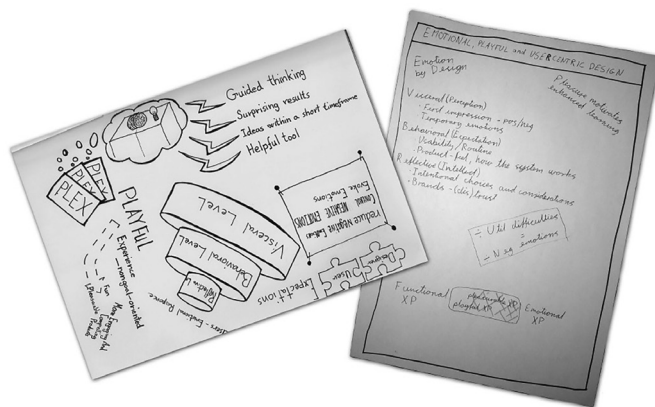 Guided thinking
Surprising results
Ideas within a short timeframe
Helpful tool
PLEX
PLEX
PLEX
PLAYFUL
Experience
nongoal-oriented
Fun
Pleasurable
More Engaging and
Products
Visceral Level
Behavioral Level
Reflective
Users - Emotional Response
reduce Negative
NEGATIVE EMOTIONS
Evoke Emotions
Designer
User
Expectations
EMOTIONAL, PLAYFUL and USERCENTRIC DESIGN
Emotion
by Design
Pleasure motivates
enhanced learning
Visceral (Perception)
- First impression - pos/neg
- Temporary emotions
Behavioral (Expectation)
- Usability/Routine
- Product-feel, how the system works
Reflective (Intellect)
- Intentional choices and considerations
- Brands - (dis)trust
= Util difficulties
=
- Neg emotions
Functional
XP
pleasurable XP
playful XP
Emotional
XP